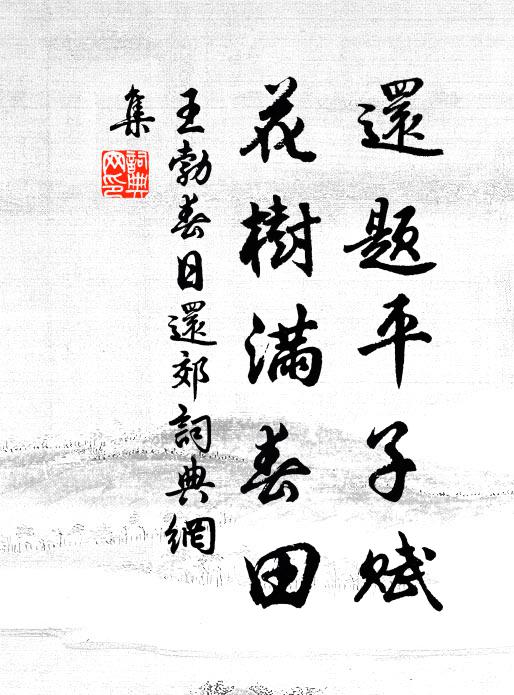 還題平子賦
花樹滿春田
王勃春日還郊詞典網
集
詞典網印